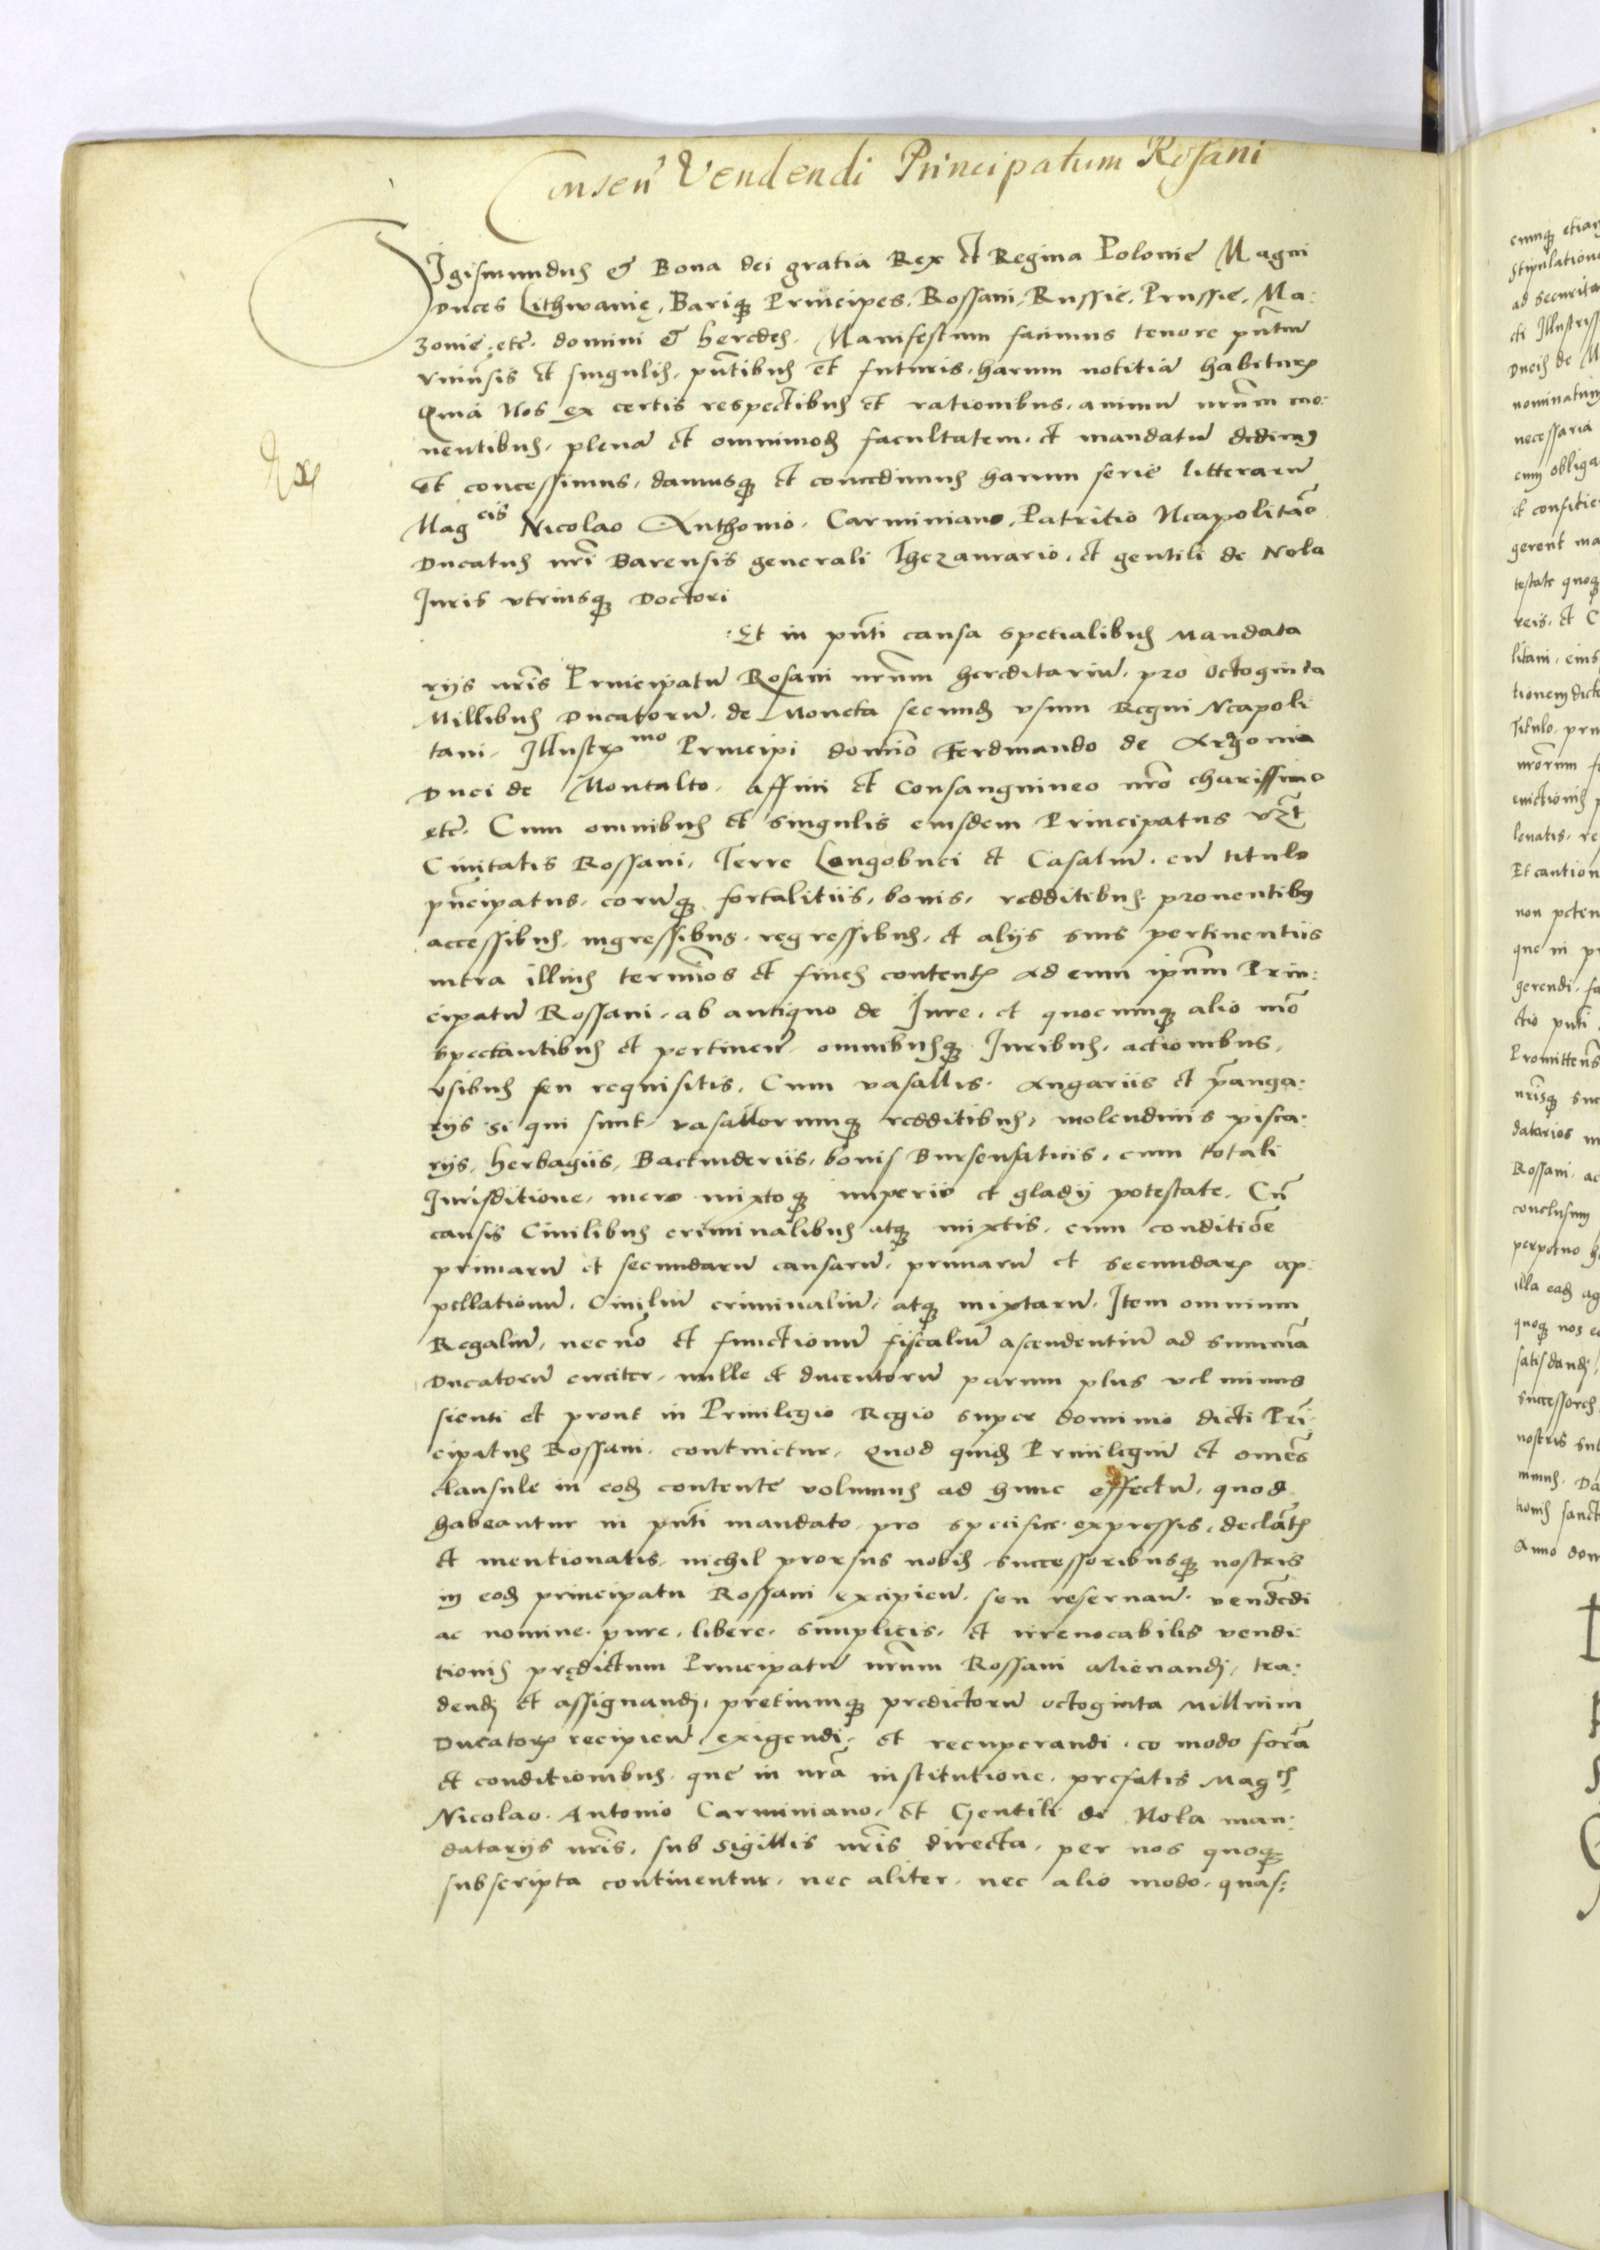 Consen̄ Vendendi Principatum Rosani
Sigismundus & Bona dei gratia Rex et Regina Polonie Magni
Duces Lithwanię, Bariq; Principes, Rossani, Russie, Prussie, Ma:
zonie, etc̄. domini & heredes. Manifestum facimus tenore pn̄tiū
vniūsis et singulis, pn̄tibus et futuris, harum notitiā habituris
Quia Nos ex certis respectibus et rationibus, animū nr̄um mo:
uentibus, plenā et omnimod facultatem, et mandatū dedimus
Et concessimus, damusq; et concedimus harum serie litterarū
Mag^cis Nicolao Anthonio, Carminiano, Patritio Neapolitāo
Ducatus nr̄i Barensis generali Thezaurario, et gentili de Nola
Juris vtriusq; Doctori
Et in pn̄ti causa spetialibus Mandata
rijs nr̄is Principatū Rosani nr̄um hereditariū, pro octoginta
Millibus Ducatorū, de Moneta secund vsum Regni Neapoli
tani, Illustr^mo Principi domīo Ferdinando de Argonia
Duci de Montalto, Affini et Consanguineo nr̄o charissimo
etc̄. Cum omnibus et singulis eiusdem Principatus vz̄t
Ciuitatis Rossani, Terre Longobuci et Casaliū, cū titulo
pn̄cipatus, eorūq; fortalitiis, bonis, redditibus, prouentibus
accessibus, ingressibus, regressibus, et alijs suis pertinentiis
intra illius termīos et fines contentis ad eum ip̄um Prin:
cipatū Rossani, ab antiquo de Jure, et quocumq; alio mō
spectantibus et pertineū, omnibusq; Juribus, actionibus,
vsibus seu requisitis, Cum vasallis, Angariis et p̄anga:
rijs si qui sunt vasallorumq; redditibus, molendinis pisca:
rijs, herbagiis, Bactinderiis, bonis Bursensaticis, cum totali
Jurisditione, mero mixtoq; imperio et gladij potestate, Cū
causis Ciuilibus criminalibus atq; mixtis, cum conditiōe
primarū et secundarū causarū, primarū et secundar ap:
pellationū, Ciuiliū criminaliū, atq; mixtarū, Item omnium
Regaliū, nec nō et functionū fiscaliū ascendentiū ad summā
Ducatorū circiter, mille et ducentorū parum plus vel minus
sicuti et prout in Priuilegio Regio super dominio dicti Pri
cipatus Rossani, continetur, Quod quid Priuilegiū et omēs
clausule in eod contente volumus ad hunc effectū, quod
habeantur in pn̄ti mandato pro specifice expressis, declātis
et mentionatis, nichil prorsus nobis successoribusq; nostris
in eod principatu Rossani excipieū, seu reseruaū, vendēdi
ac nomine, pure, libere, simplicis, et irreuocabilis vendi
tionis prędictum Principatū nr̄um Rossani alienandi, tra:
dendi et assignandi, pretiumq; predictorū octoginta Millium
Ducator recipieū exigendi, et recuperandi, eo modo forā
et conditionibus, que in nr̄a institutione, prefatis Mag^cis
Nicolao Antonio Carminiano, et Gentili de Nola man:
datarijs nr̄is, sub sigillis nr̄is directa, per nos quoq;
subscripta continentur, nec aliter, nec alio modo, quas: